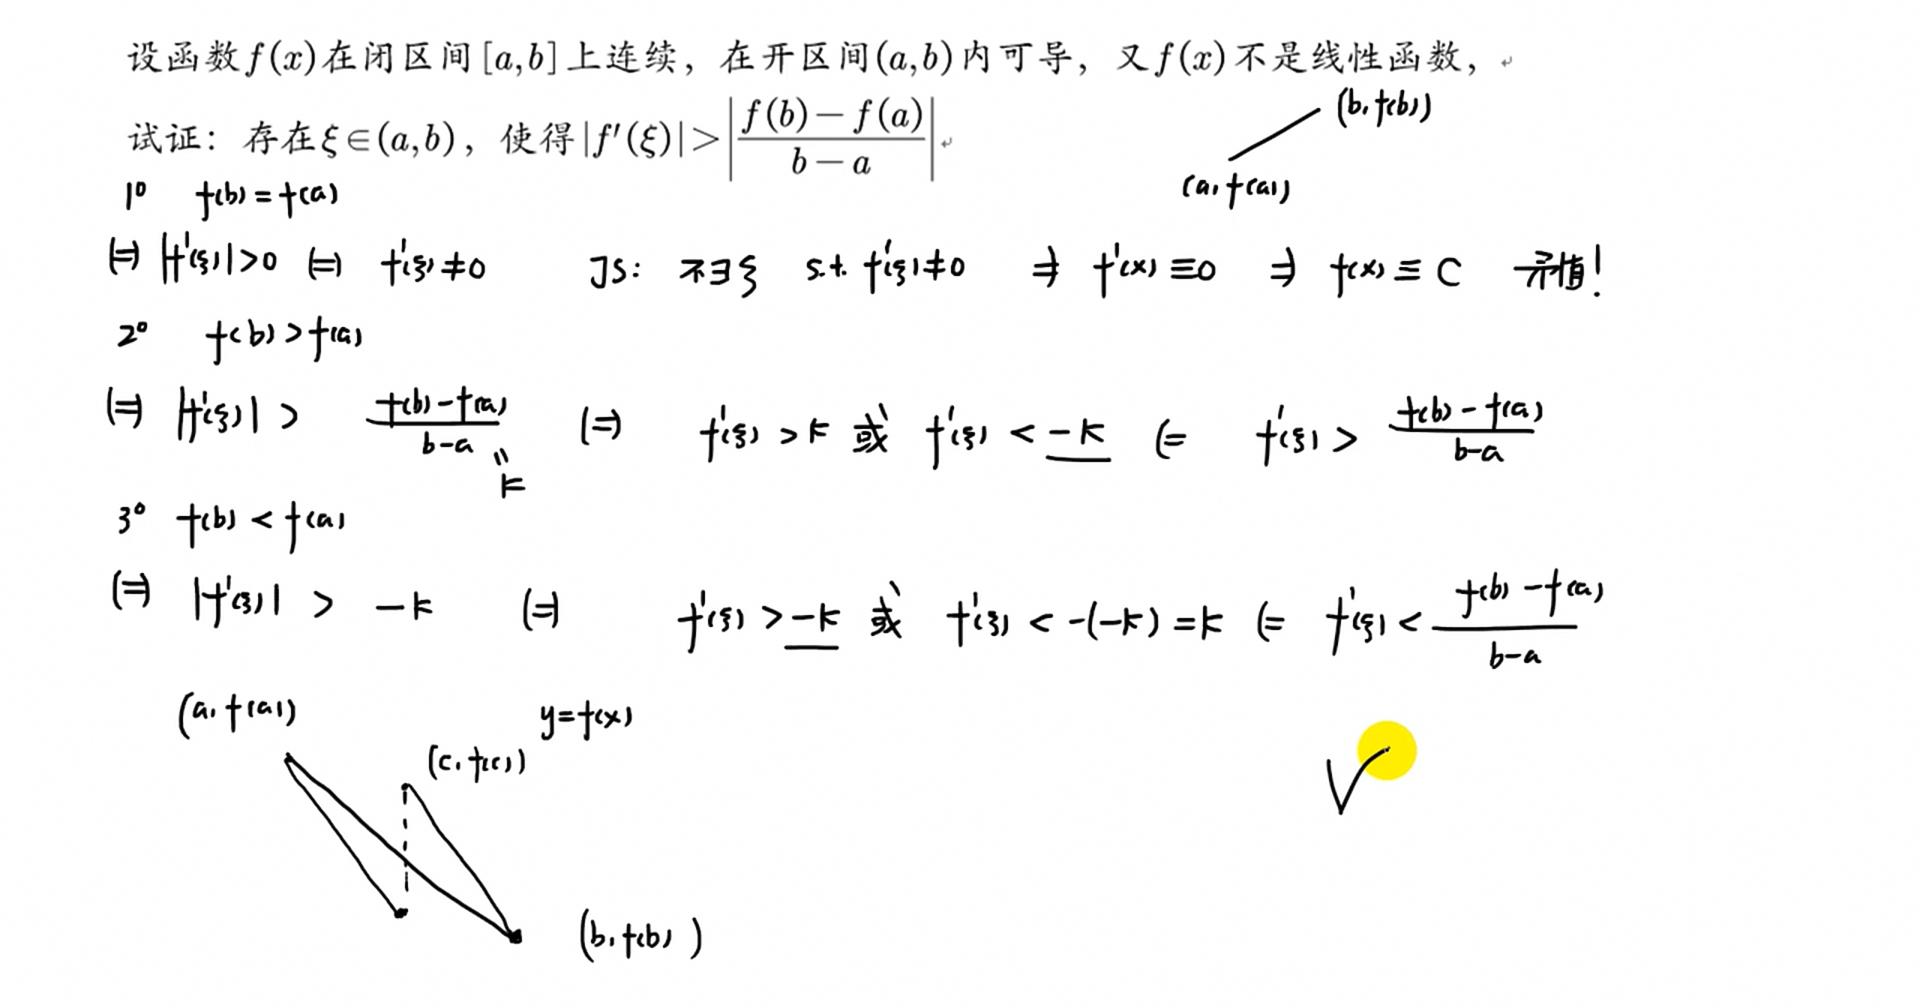 设函数f(x)在闭区间[a,b]上连续，在开区间(a,b)内可导，又f(x)不是线性函数，
试证：存在ξ∈(a,b)，使得|f′(ξ)|>|(f(b)−f(a))/(b−a)|
(b, f(b))
(a, f(a))
1° f(b)=f(a)
⇔ |f′(ξ)|>0 ⇔ f′(ξ)≠0 JS: 不∃ξ s.t. f′(ξ)≠0 ⇒ f′(x)≡0 ⇒ f(x)≡C 矛盾!
2° f(b)>f(a)
⇔ |f′(ξ)| > (f(b)−f(a))/(b−a) = k ⇔ f′(ξ)>k 或 f′(ξ)<−k ⇐ f′(ξ)> (f(b)−f(a))/(b−a)
3° f(b)<f(a)
⇔ |f′(ξ)| > −k ⇔ f′(ξ)>−k 或 f′(ξ)<−(−k)=k ⇐ f′(ξ)< (f(b)−f(a))/(b−a)
(a, f(a)) y=f(x)
(c, f(c))
(b, f(b))